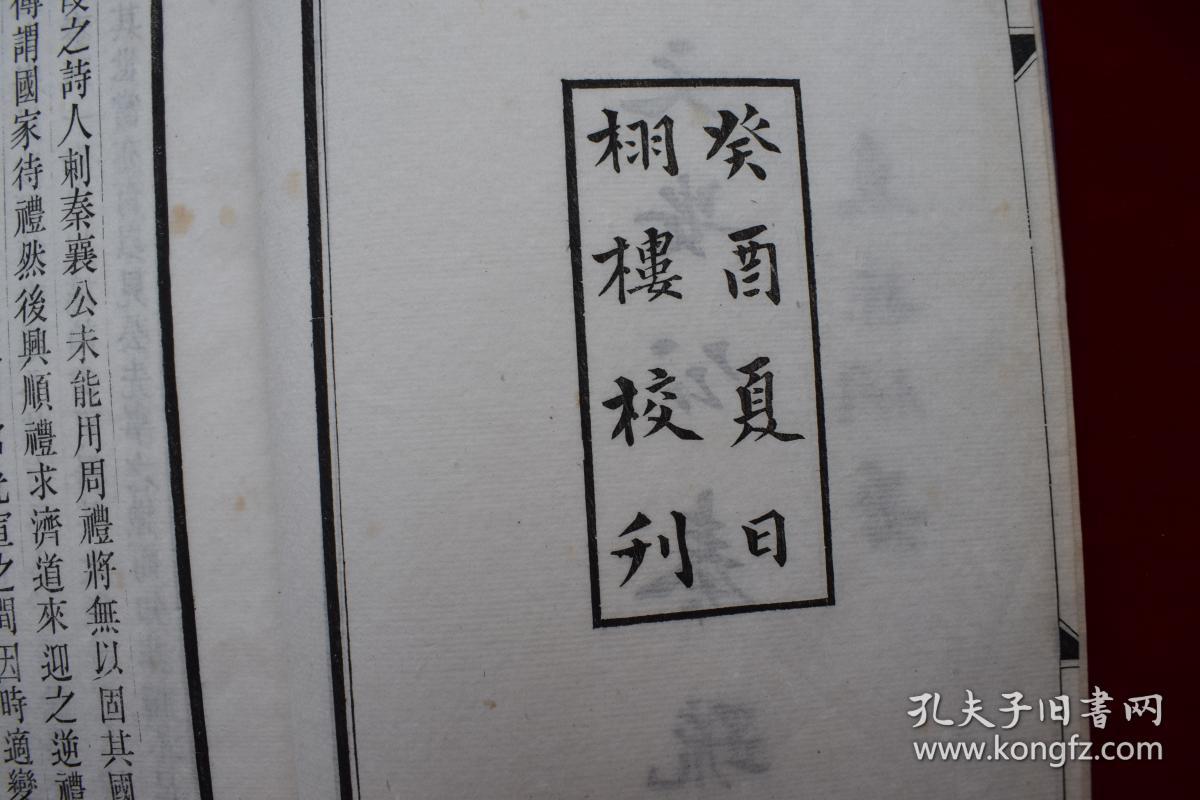 癸酉夏日
栩樓校刊
之詩人刺秦襄公未能用周禮將無以固其國
傳謂國家待禮然後興順禮求濟道來迎之逆禮
宣之間因時適變
孔夫子旧书网
www.kongfz.com